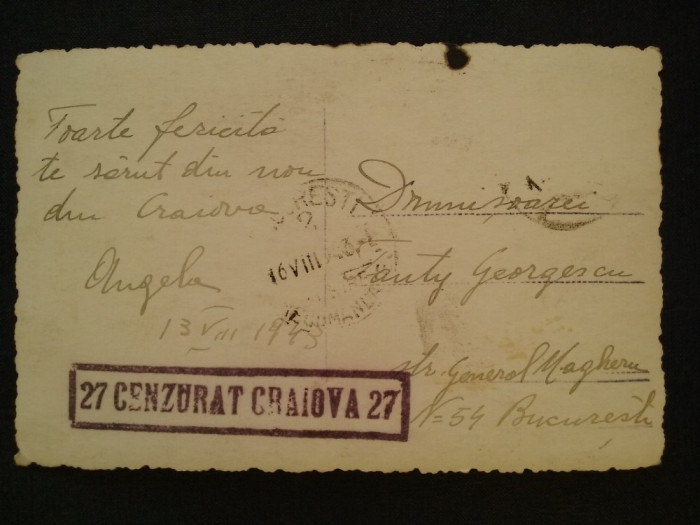 Foarte fericită
te sărut din nou
din Craiova
Angela
13 VIII 1943
27 CENZURAT CRAIOVA 27
REȘTI
16 VIII
COMAND
Dmnișoarei
Tanty Georgescu
str. General Magheru
N=54 București